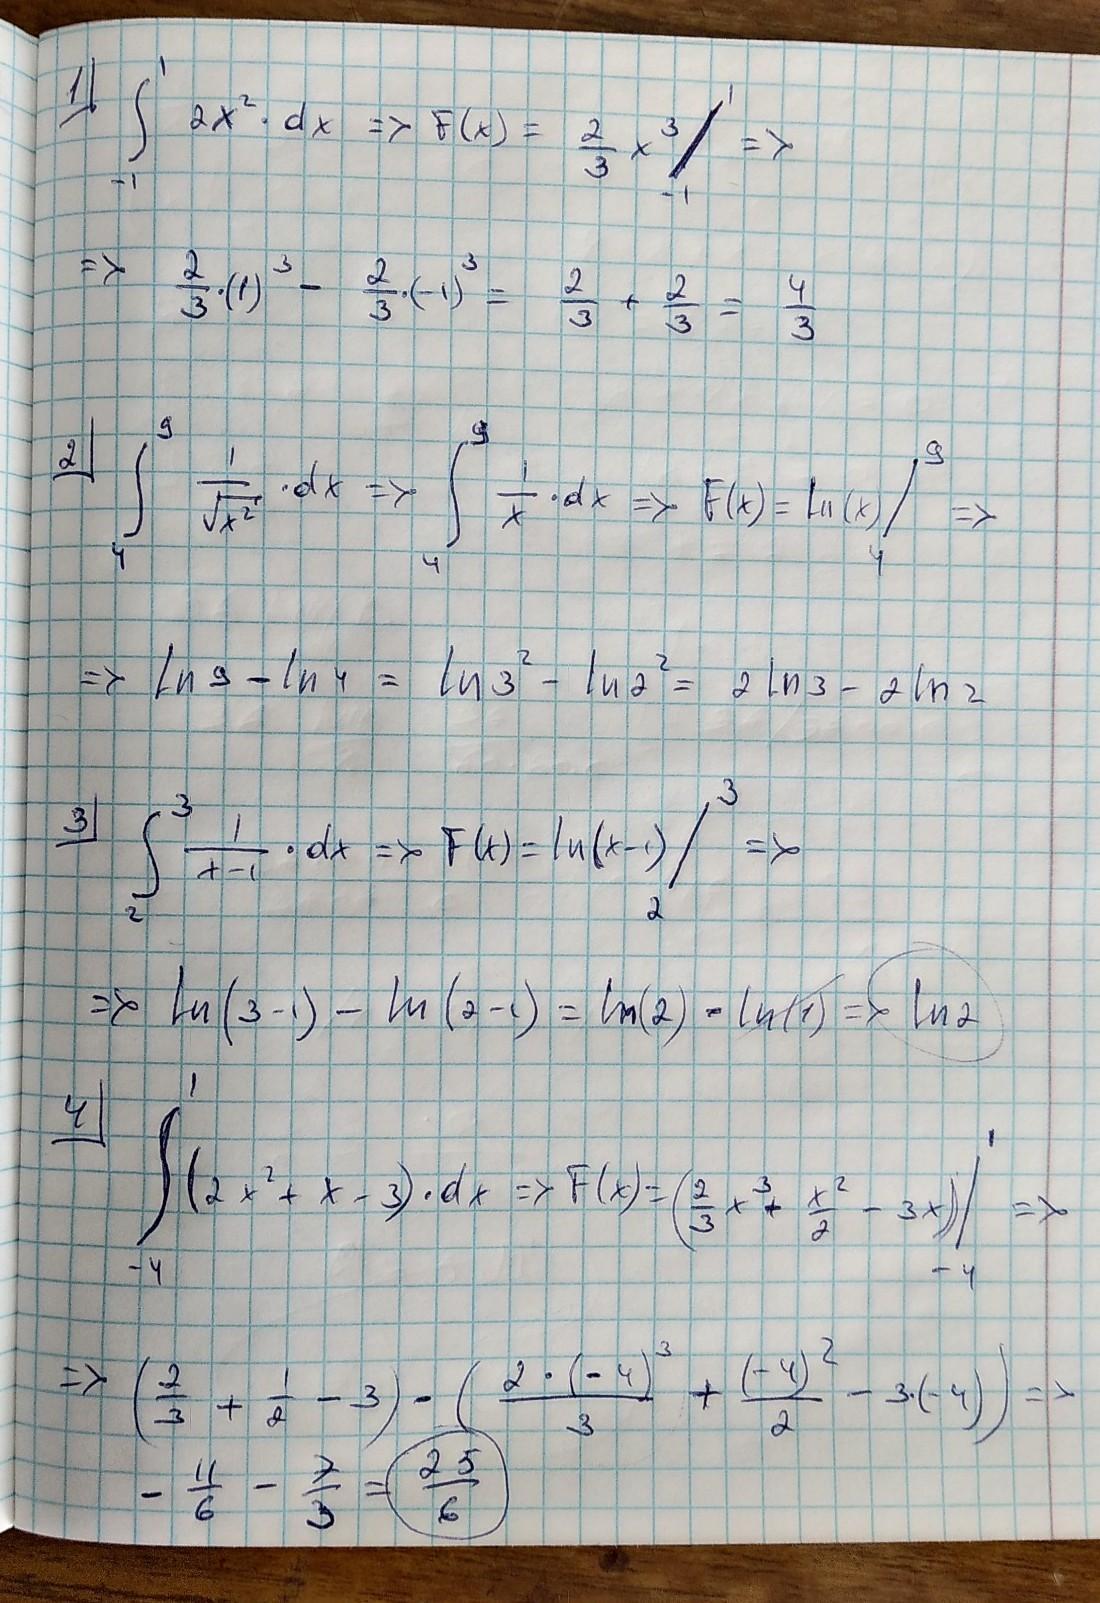 1) ∫_{-1}^{1} 2x² · dx => F(x) = 2/3 x³ /_{-1}^{1} =>
=> 2/3 · (1)³ - 2/3 · (-1)³ = 2/3 + 2/3 = 4/3
2) ∫_{4}^{9} 1/√x² · dx => ∫_{4}^{9} 1/x · dx => F(x) = ln(x) /_{4}^{9} =>
=> ln 9 - ln 4 = ln 3² - ln 2² = 2 ln 3 - 2 ln 2
3) ∫_{2}^{3} 1/(x-1) · dx => F(x) = ln(x-1) /_{2}^{3} =>
=> ln(3-1) - ln(2-1) = ln(2) - ln(1) => ln 2
4) ∫_{-4}^{1} (2x² + x - 3) · dx => F(x) = (2/3 x³ + x²/2 - 3x) /_{-4}^{1} =>
=> (2/3 + 1/2 - 3) - (2·(-4)³/3 + (-4)²/2 - 3·(-4)) =>
- 11/6 - 7/3 = 25/6